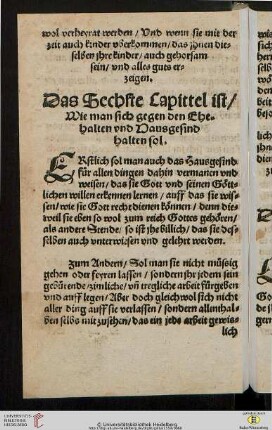 wol verheyrat werden / Vnd wenn sie mit der
zeit auch kinder vberkommen / das jhnen die=
selben jhre kinder / auch gehorsam
sein / vnd alles guts er=
zeigen.
Das Sechste Capittel ist /
Wie man sich gegen den Ehe=
halten vnd Hausgesind
halten sol.
ERstlich sol man auch das Hausgesind
für allen dingen dahin vermanen vnd
weisen / das sie Gott vnd seinen Gött=
lichen willen erkennen lernen / auff das sie wis=
sen / wie sie Gott recht dienen können / denn die=
weil sie eben so wol zum reich Gottes gehören /
als andere Stende / so ist jhe billich / das sie des=
selben auch vnterwisen vnd gelehrt werden.
Zum Andern / Sol man sie nicht müssig
gehen oder feyren lassen / sondern jhr jedem sein
gebürende / zimliche / vñ tregliche arbeit fürgeben
vnd auff legen / Aber doch gleichwol sich nicht
aller ding auff sie verlassen / sondern allenthal=
ben selbs mit zusehen / das ein jeds arbeit gewis=
lich
UNIVERSITÄTS-
BIBLIOTHEK
HEIDELBERG
© Universitätsbibliothek Heidelberg